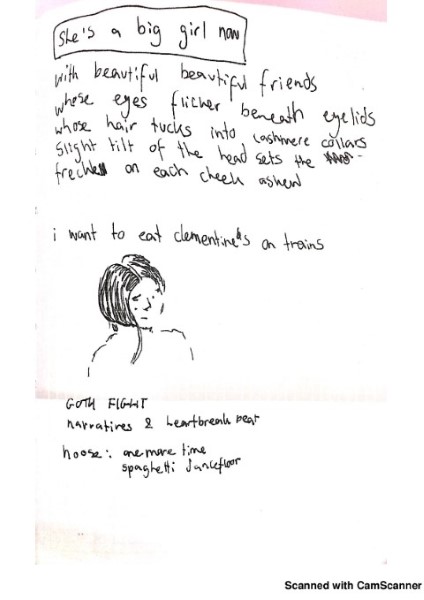 She's a big girl now
with beautiful beautiful friends
whose eyes flicker beneath eyelids
whose hair tucks into cashmere collars
slight tilt of the head sets the
freckles on each cheek askew
i want to eat clementine's on trains
GOTH FIGHT
narratives & heartbreak beat
house: one more time
spaghetti dancefloor
Scanned with CamScanner